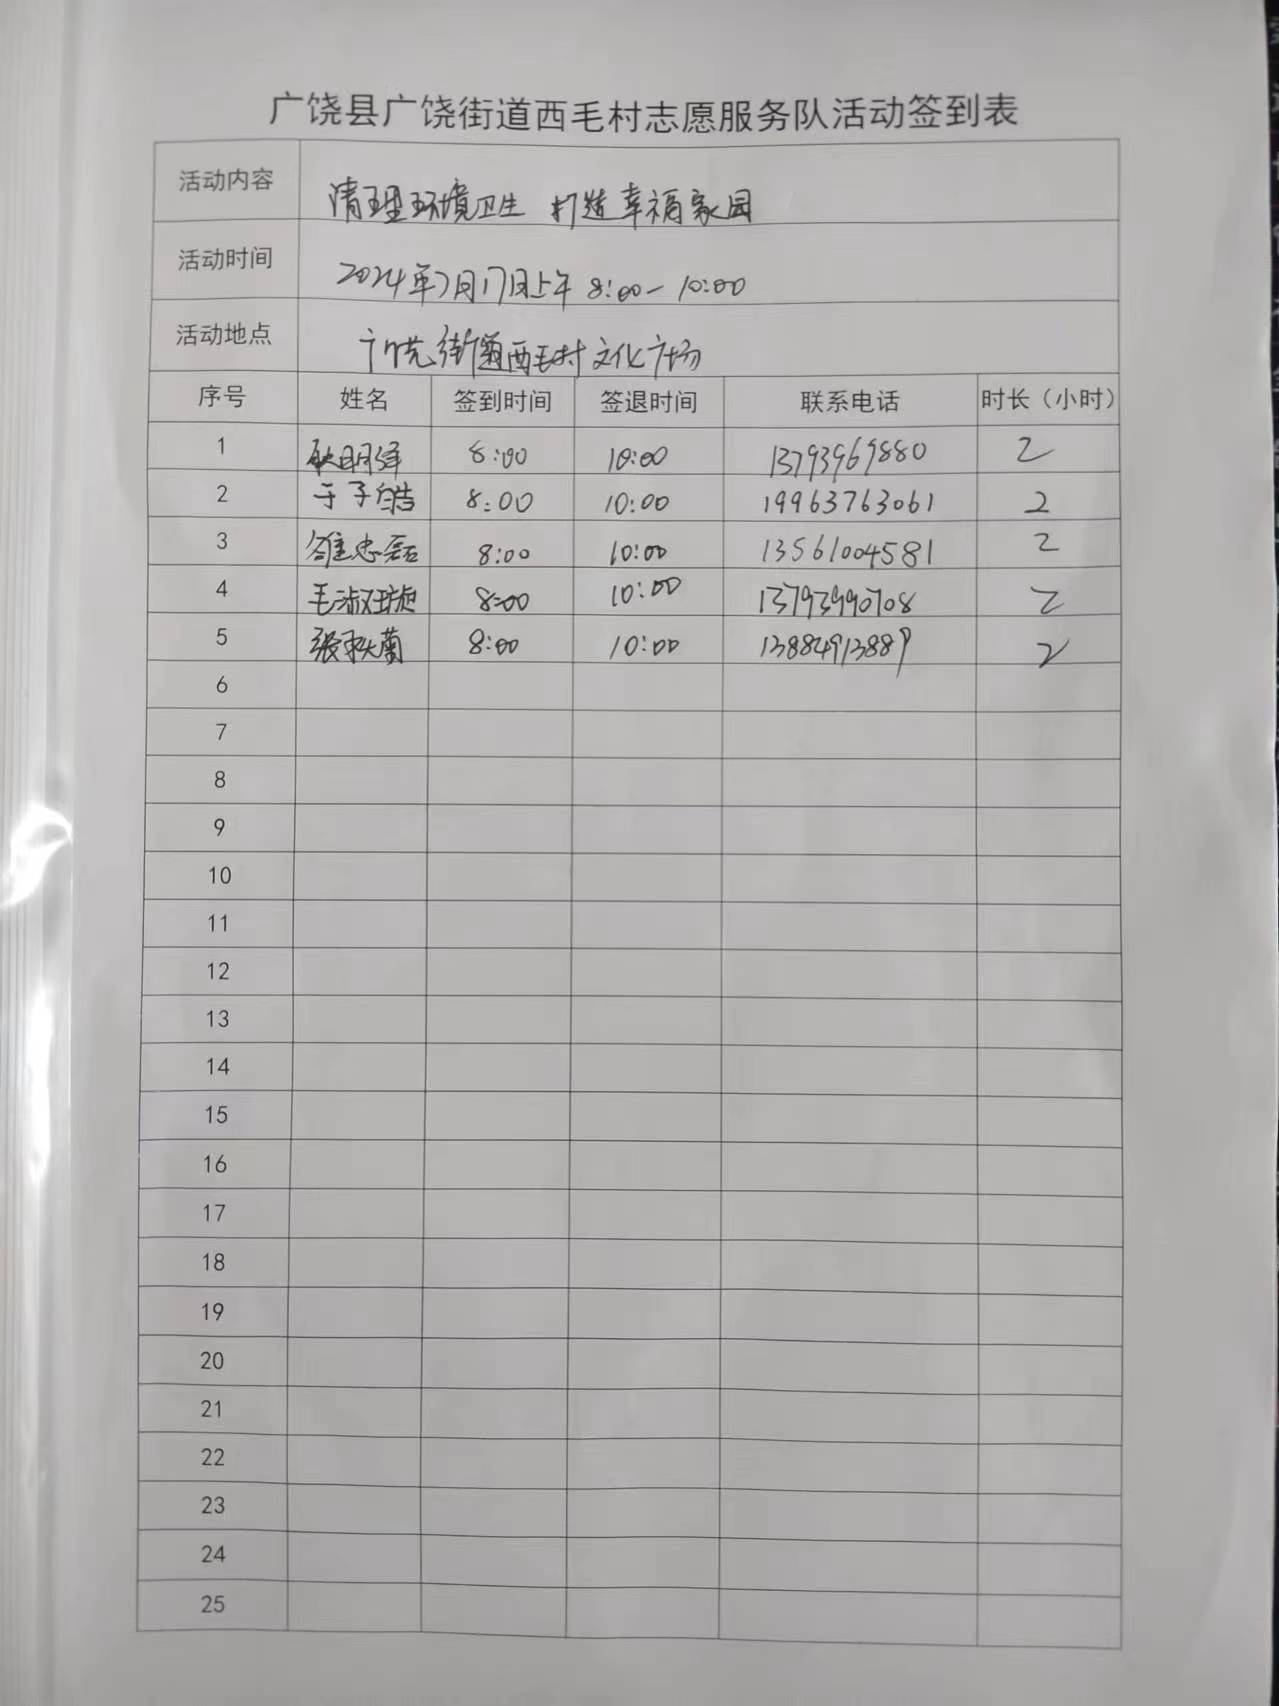 广饶县广饶街道西毛村志愿服务队活动签到表
活动内容 清理环境卫生 打造幸福家园
活动时间 2024年7月17日上午 8:00-10:00
活动地点 广饶街道西毛村文化广场
序号 姓名 签到时间 签退时间 联系电话 时长（小时）
1 耿明泽 8:00 10:00 13793969880 2
2 于子皓 8:00 10:00 19963763061 2
3 雒忠磊 8:00 10:00 13561004581 2
4 毛淑璇 8:00 10:00 13793990708 2
5 张秋菊 8:00 10:00 13884913889 2
6
7
8
9
10
11
12
13
14
15
16
17
18
19
20
21
22
23
24
25